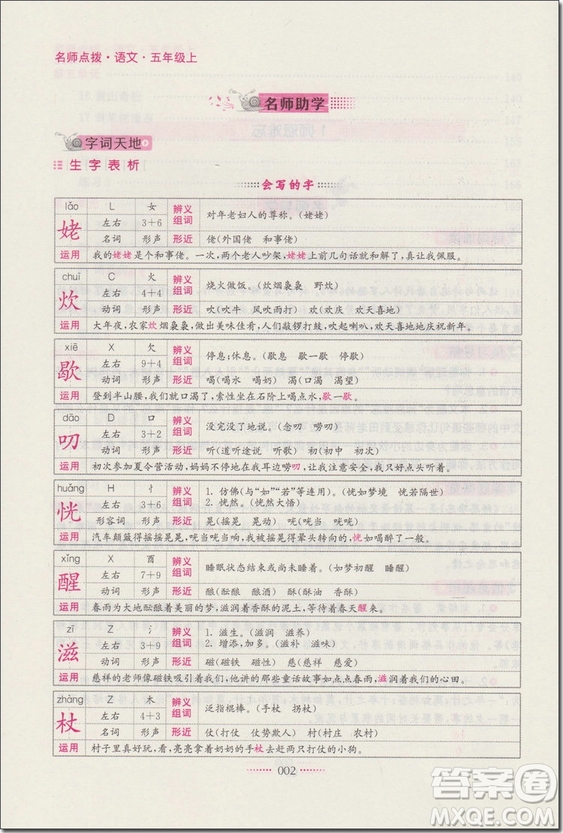 名师点拨·语文·五年级上
名师助学
字词天地
生字表析
会写的字
lǎo L 女 辨义组词 对年老妇人的尊称。(姥姥)
姥 左右 3+6
名词 形声 形近 佬(外国佬 和事佬)
运用 我的姥姥是个和事佬。一次,两个老人吵架,姥姥上前几句话就和解了,真让我佩服。
chuī C 火 辨义组词 烧火做饭。(炊烟袅袅 野炊)
炊 左右 4+4
动词 形声 形近 吹(吹牛 风吹雨打) 欢(欢庆 欢天喜地)
运用 大年夜,农家炊烟袅袅,做出美味佳肴;人们敲锣打鼓,吹起喇叭,欢天喜地地庆祝新年。
xiē X 欠 辨义组词 停息;休息。(歇息 歇一歇 停歇)
歇 左右 9+4
动词 形声 形近 喝(喝水 喝奶) 渴(口渴 渴望)
运用 登到半山腰,我们就口渴了,索性坐在石阶上喝点水,歇一歇。
dāo D 口 辨义组词 没完没了地说。(念叨 唠叨)
叨 左右 3+2
动词 形声 形近 听(道听途说 听歌) 初(初中 初次)
运用 初次参加夏令营活动,妈妈不停地唠叨,让我注意安全,我只好点头听着。
huǎng H 忄 辨义组词 1. 仿佛(与“如”“若”等连用)。(恍如梦境 恍若隔世)
恍 左右 3+6 2. 恍然。(恍然大悟)
形容词 形声 形近 晃(摇晃 晃动) 咣(咣当咣当)
运用 汽车颠簸得摇摇晃晃,咣当咣当响,我被摇晃得晕头转向的,恍如喝醉了。
xǐng X 酉 辨义组词 睡眠状态结束或尚未睡着。(如梦初醒 睡醒)
醒 左右 7+9
动词 形声 形近 酿(酝酿 酿酒) 酥(酥油 香酥)
运用 春雨为大地酝酿着美丽的梦,滋润着香酥的泥土,万物在睡梦中随着春天醒来。
zī Z 氵 辨义组词 1. 滋生。(滋润 滋养)
滋 左右 3+9 2. 增添,加多。(滋补 滋味)
动词 形声 形近 磁(磁铁 磁性) 慈(慈祥 慈爱)
运用 慈祥的老师像磁铁吸引着我们,他讲的那些童话故事如点点春雨,滋润着我们的心田。
zhàng Z 木 辨义组词 泛指棍棒。(手杖 拐杖)
杖 左右 4+3
名词 形声 形近 仗(打仗 仗势欺人) 村(村庄 农村)
运用 村子里真好玩,看,亮亮拿着奶奶的手杖去赶两只打仗的小狗。
002
答案圈